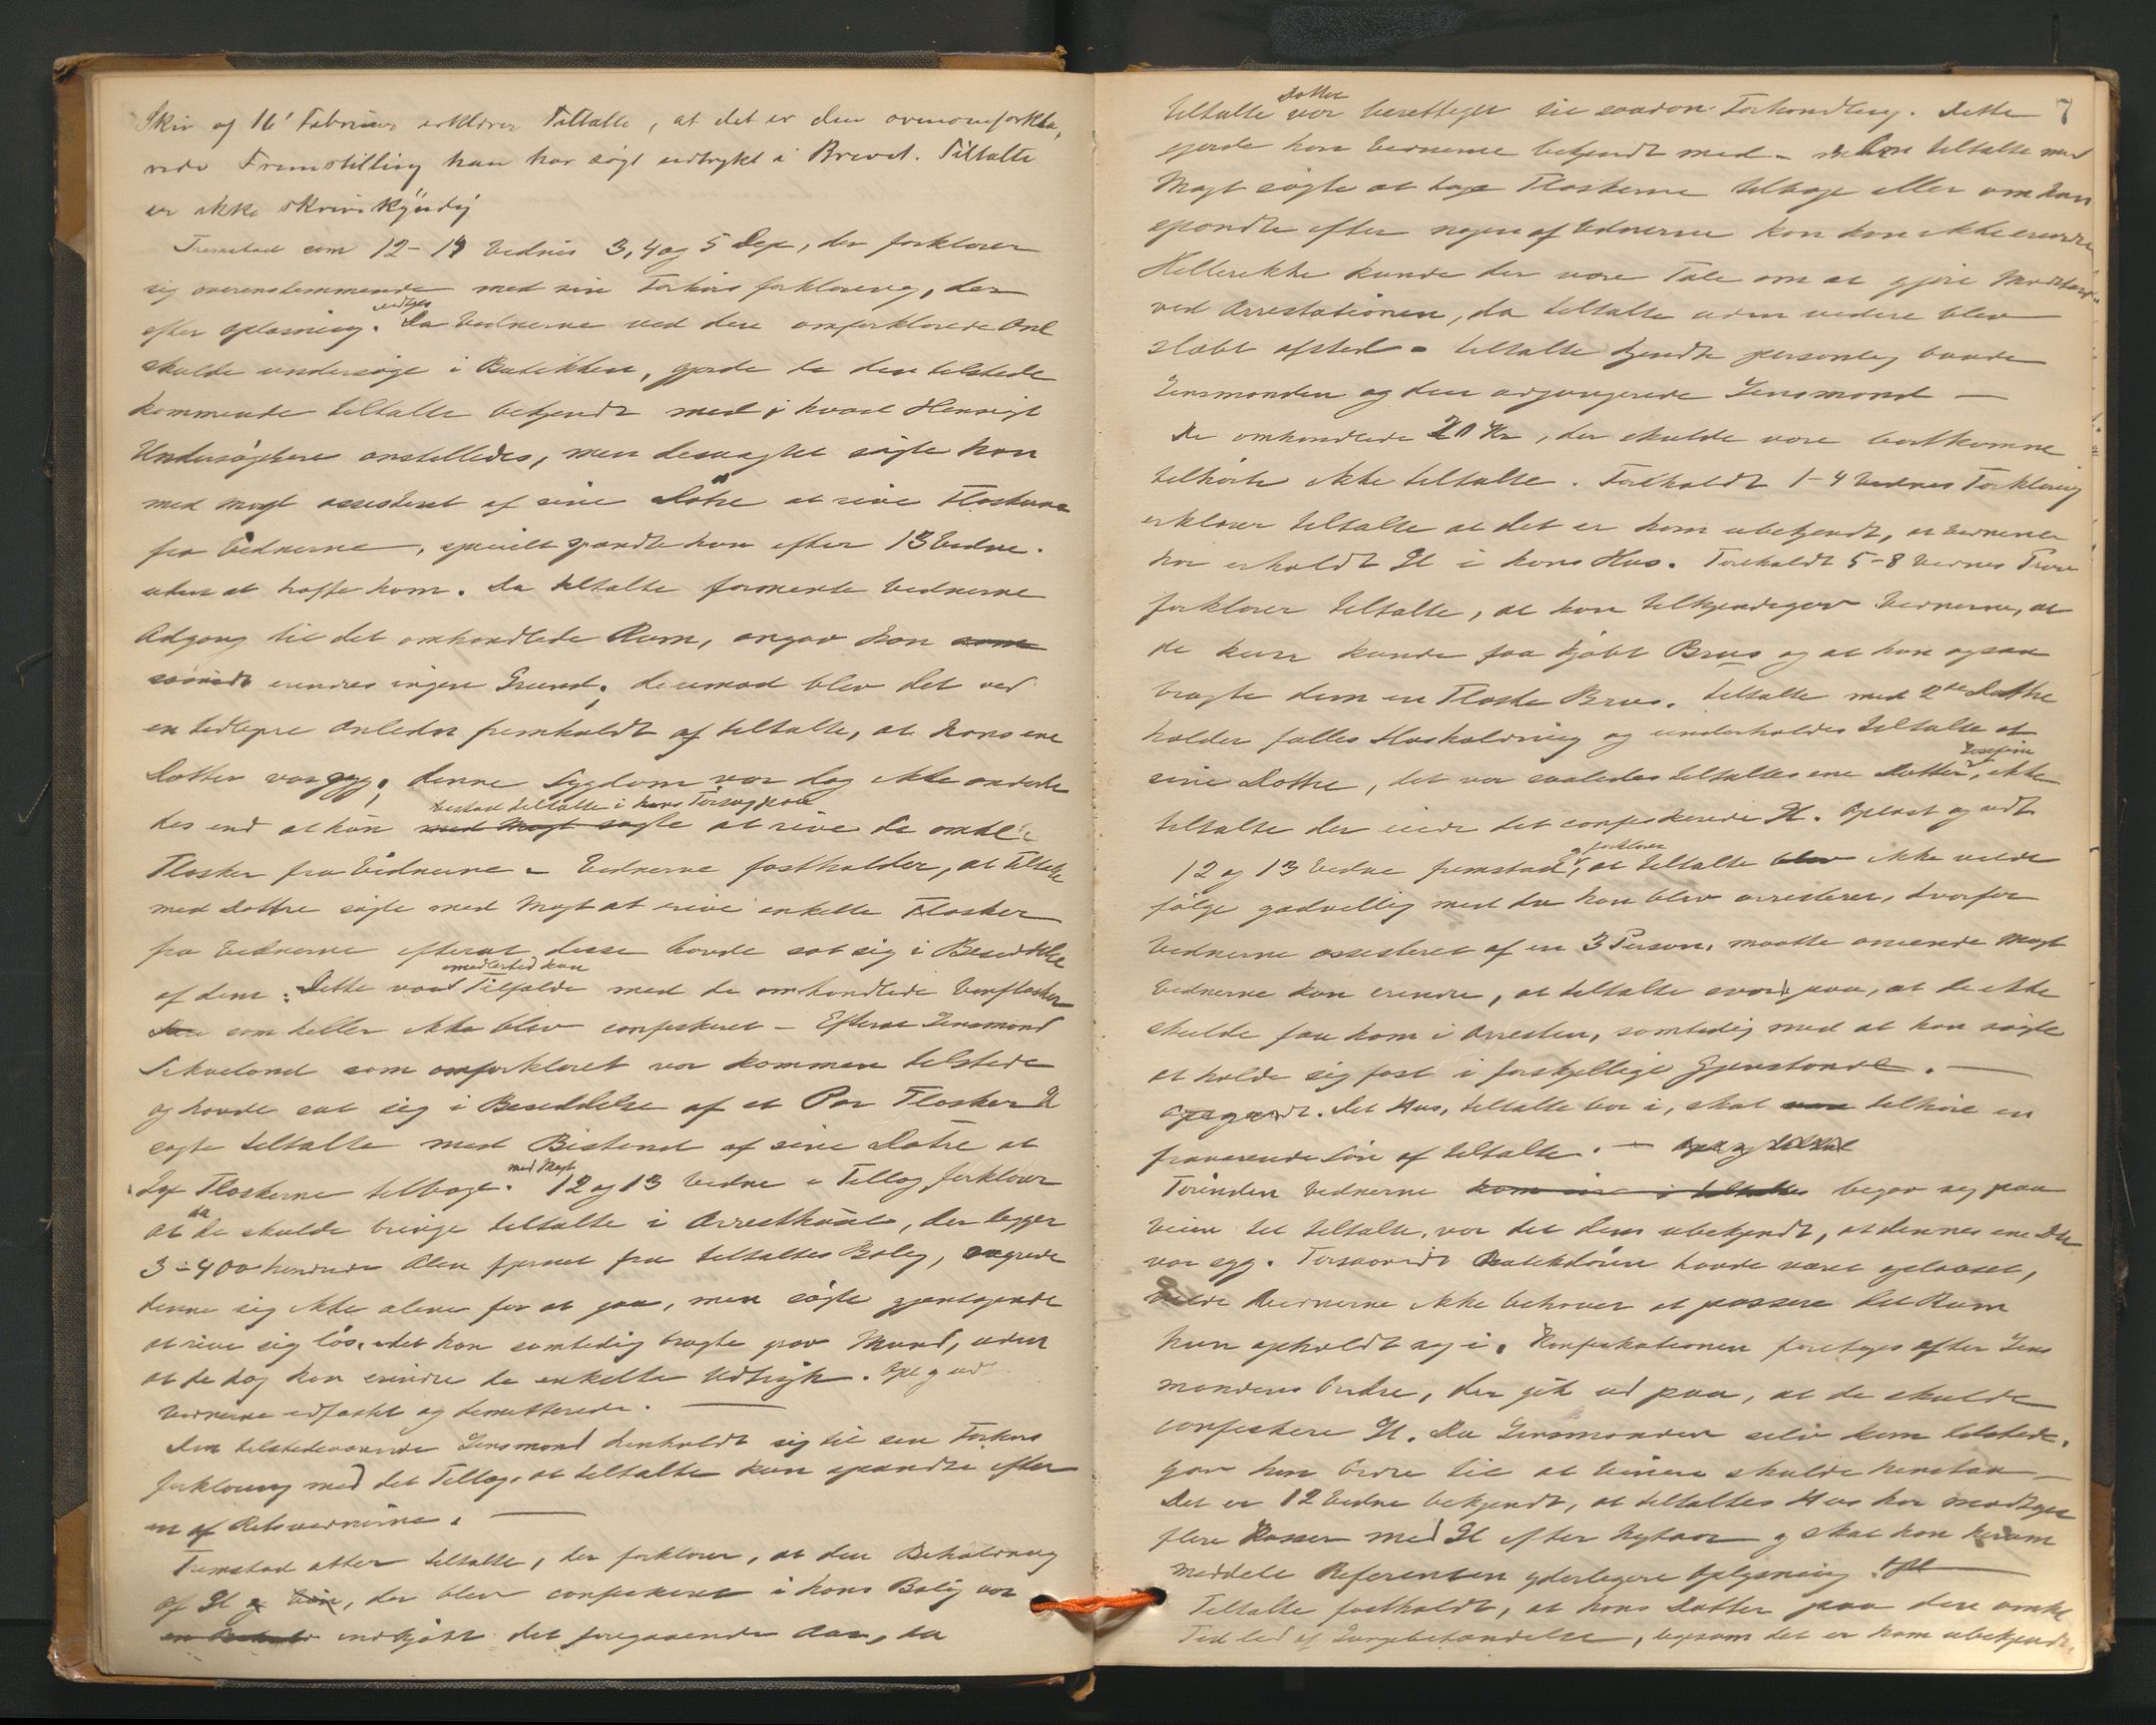 Skriv af 16' Februar erklærer Tiltalte, at det er den ovenomforkla-
rede Fremstilling han har søgt udtrykt i Brevet. Tiltalte
er ikke skrivekyndig
Fremstod som 12-14 Vidnes 3, 4 og 5 Dep, der forklarer
sig overensstemmende med sin Forhørsforklaring, der
efter Oplæsning vedtages. Da Vidnerne ved den omforklarede Anl
skulde undersøge i Butikken, gjorde de den tilstede
kommende tiltalte bekjendt med i hvad Hensigt
Undersøgelsen anstilledes, men desuagtet søgte han
med Magt assisteret af sine Døtre at rive Flaskerne
fra Vidnerne, specielt spændte han efter 13 Vidne
uden at træffe ham. Da tiltalte formente Vidnerne
Adgang til det omhandlede Rum, angav han som
saavidt erindres ingen Grund, derimod blev det ved
en tidligere Anledn fremholdt af tiltalte, at hans ene
Datter var syg; denne Sygdom var dog ikke anderle
des end at hun bistod tiltalte i hans Forsøg paa med Magt søgte at rive de omhl
Flasker fra Vidnerne - Vidnerne fastholder, at tiltalte
med Døttre søgte med Magt at rive enkelte Flasker
fra Vidnerne efterat disse havde sat sig i Besiddelse
af dem: Dette var imidlertid kun Tilfælde med de omhandlede Vinflasker
som heller ikke blev confiskeret - Efterat Lensmand
som omforklaret var kommen tilstede
og havde sat sig i Besiddelse af et Par Flasker Øl
søgte tiltalte med Bistand af sine Døtre at
Flaskerne tilbage med Magt. 12 og 13 Vidne i Tillæg forklarer
at da de skulde bringe tiltalte i Arresthuset, der ligger
3-400 hundrede Alen fjernet fra tiltaltes Bolig, vægrede
denne sig ikke alene for at gaa, men søgte gjentagende
at rive sig løs, idet han samtidig brugte grov Mund, uden
at de dog kan erindre de enkelte Udtryk. Opl og ved
Vidnerne edfæstet og demitterede.
Den tilstedeværende Lensmand henholdt sig til sin Forhørs
forklaring med det Tillæg, at tiltalte kun spændte efter
en af Retsvidnerne.
Fremstod atter tiltalte, der forklarer, at den Beholdning
af Øl og Vin, der blev confiskeret i hans Bolig var
indkjøbt det foregaaende Aar, da
7
tiltaltes Datter var berettiget til saadan Forhandling. Dette
gjorde han Vidnerne bekjendt med - Om tiltalte med
Magt søgte at tage Flaskerne tilbage eller om han
spændte efter nogen af Vidnerne kan han ikke erindre
Hellerikke kunde der være Tale om at gjøre Modstand
ved Arrestationen, da tiltalte uden videre blev
slæbt afsted - tiltalte kjendte personlig baade
Lensmanden og den adjungerede Lensmand -
De omhandlede 20 Kr, der skulde være bortkomne
tilhørte ikke tiltalte. Foreholdt 1-4 Vidnes Forklaring
erklærer tiltalte at det er ham ubekjendt, at Vidnerne
har erholdt Øl i hans Hus. Foreholdt 5-8 Vidnes Prov
forklarer tiltalte, at han tilkjendegav Vidnerne, at
de kun kunde faa kjøbt Brus og at han ogsaa
bragte dem en Flaske Brus. tiltalte med 2de Døttre
holder fælles Husholdning og underholdes tiltalte af
sine Døttre, det var saaledes tiltaltes ene Datter Josefine, ikke
tiltalte der eiede det confiskerede Øl. Oplæst og vedt
12 og 13 Vidne fremstod og forklarer, at tiltalte blev ikke vilde
følge godvillig med da han blev arresteret, hvorfor
Vidnerne assisteret af en 3 Person, maatte anvende Magt
Vidnerne kan erindre, at tiltalte svor paa, at de ikke
skulde faa ham i Arresten, samtidig med at han søgte
at holde sig fast i forskjellige Gjenstande. -
Det Hus, tiltalte bor i, skal tilhøre en
fraværende Søn af tiltalte. -
Førinden Vidnerne kom ind i tiltaltes begav sig paa
Veien til tiltalte, var det dem ubekjendt, at dennes ene Dtr
var syg. Forsaavidt Butikdøren havde været oplaaset,
vilde Vidnerne ikke behøver at passere det Rum
hun opholdt sig i. Konfiskationen foretoges efter Lens
mandens Ordre, der gik ud paa, at de skulde
confiskere Øl. Da Lensmanden selv kom tilstede,
gav han Ordre til at Vinen skulde henstaa -
Det er 12 Vidne bekjendt, at tiltaltes Hus har modtaget
flere Kasser med Øl efter Nytaar og skal han herom
meddele Referenten yderligere Oplysning. Opl
Tiltalte fastholdt, at hans Datter paa den omhl
Tid led af Lungebetændelse, ligesom det er ham ubekjendt,